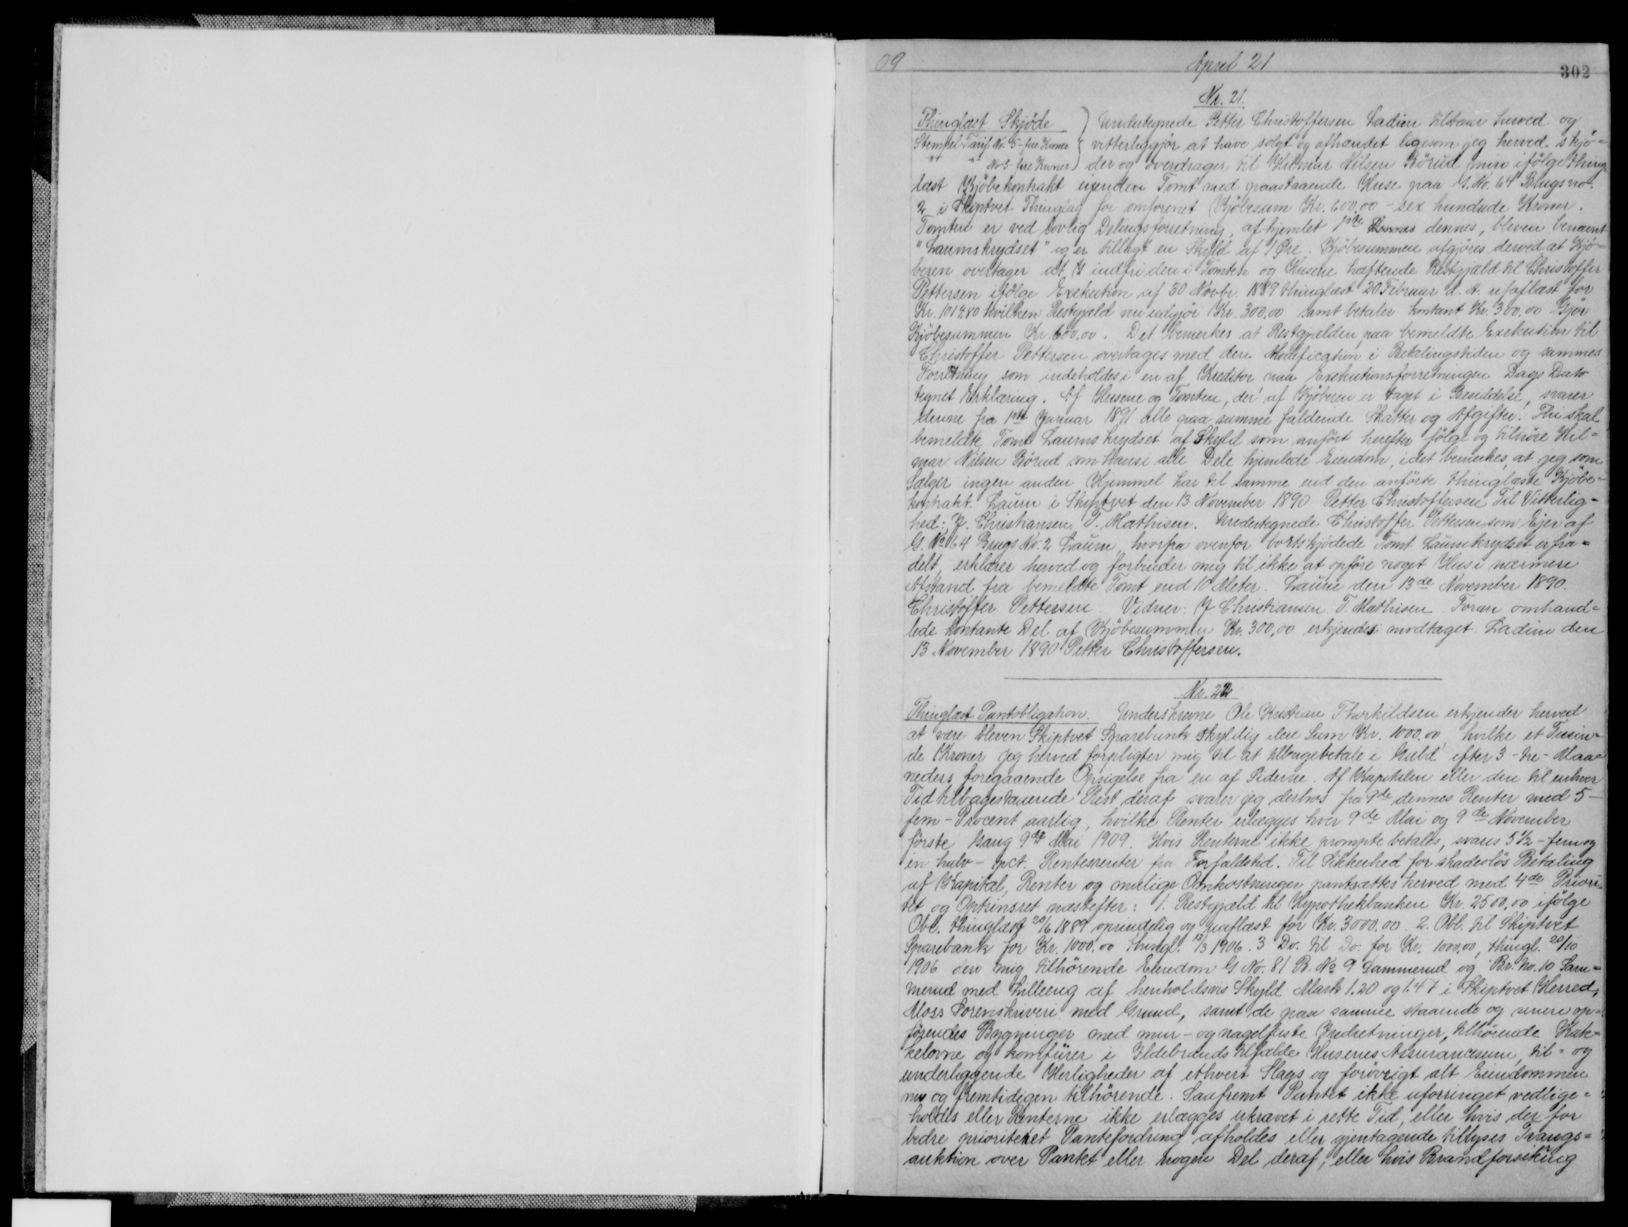 09 April 21 302
No. 21.
Thinglæst Skjøde Undertegnede Petter Christoffersen Ladim tilstaar herved og
Stempel Tarif No. 5 - fire Kroner vitterliggjør at have solgt og afhændet ligesom jeg herved skjø=
" " No 5 fire Kroner der og overdrager til Hilmar Nilsen Börud min ifölge thing
læst Kjöbekontrakt eiendes Tomt med paastaaende Huse paa G. No. 64 Brugs no.
2 i Skiptvet Thinglag for omforenet Kjöbesum Kr. 600,00 - sex hundrede Kroner.
Tomten er ved lovlig Delingsforretning, afhjemlet 1ste dennes, bleven benævnt
"Laumskrydset" og er tillagt en Skyld af 1 Øre. Kjöbesummen afgjöres derved at Kjö=
beren overtager at indfri den i Tomten og Husene hæftende Restgjæld til Christoffer
Pettersen ifölge Exekution af 30 Novbr. 1889 thinglæst 20 Februar d. A. for
Kr. hvilken Restgjæld nu udgjör Kr. 300,00 samt betaler kontant Kr. 300,00 Gjör
Kjöbesummen Kr 600,00. Det bemerkes at Restgjælden paa bemeldte Exekution til
Christoffer Pettersen overtages med den Modification i Betalingstiden og sammes
Forrentning som indeholdes i en af Kreditor paa Exekutionsforretningen Dags Dato
tegnet Erklæring. Af Husene og Tomten, der af Kjöberen er taget i Besiddelse, svarer
denne fra 1ste Januar 1891 alle paa samme faldende Skatter og Afgifter. Thi skal
bemeldte Tomt Laums krydset af Skyld som anfört herefter fölge og tilhöre Hil=
mar Nilsen Börud som Hans i alle Dele hjemlede Eiendom, idet bemerkes, at jeg som
Sælger ingen anden Hjemmel har til samme end den anförte thinglæste Kjöbe=
kontrakt. Laum i Skiptvet den 13 November 1890 Petter Christoffersen Til Vitterlig=
hed: J. Christiansen T. Mathisen. Undertegnede Christoffer Pettersen som Ejer af
G. No 64 Brugs No. 2 Laum, hvorfra ovenfor bortskjödede Tomt Laumskrydset er fra=
delt, erklærer herved og forbinder mig til ikke at opföre noget Hus i nærmere
Afstand fra bemeldte Tomt end 10 Meter. Laum den 13de November 1890.
Christoffer Pettersen Vidner: J Christiansen T. Mathisen. Foran omhand=
lede kontante Del af Kjöbesummen Kr. 300,00 erkjendes modtaget. Ladim den
13 November 1890 Petter Christoffersen.
No. 22
Thinglæst Pantobligation. Underskrevne Ole Kristian Thorkildsen erkjender herved
at være bleven Skiptvet Sparebank skyldig den Sum Kr. 1000,00 hvilke et Tusin=
de Kroner jeg herved forpligter mig til at tilbagebetale i Guld efter 3 - tre - Maa=
neders foregaaende Opsigelse fra en af Siderne. Af Kapitalen eller den til enhver
Tid tilbagestaaende Rest deraf svarer jeg derhos fra 9de dennes Renter med 5 -
fem - Procent aarlig, hvilke Renter erlægges hver 9de Mai og 9de November
förste Gang 9de Mai 1909. Hvis Renterne ikke prompte betales, svares 5 1/2 - fem og
en halv - pct. Rentesrenter fra Forfaldstid. Til Sikkerhed for skadeslös Betaling
af Kapital, Renter og mulige Omkostninger pantsættes herved med 4de Priori=
tet og Optrinsret næstefter: 1. Restgjæld til Hypothekbanken Kr. 2500,00 ifölge
Obl. thinglæst 20/6 1889 oprindelig og for Kr. 3000,00. 2. Obl. til Skiptvet
Sparebank for Kr. 1000.00 thingl. 12/3 1906. 3 Do. til Do. for Kr. 1000,00, thingl. 20/10
1906 den mig tilhörende Eiendom G No. 81 B. No 9 Sammerud og Br. No. 10 Sam=
merud med Lilleeng af henholdsvis Skyld Mark 1.20 og 1.47 i Skiptvet Herred,
Moss Sorenskriveri med Grund, samt de paa samme staaende og senere op=
förendes Bygninger med mur- og nagelfaste Indretninger, tilhörende Kak=
kelovne og komfürer i Ildebrands tilfælde Husenes Assurancesum, til= og
underliggende Herligheder af ethvert Slags og forövrigt alt Eiendommen
nu og fremtidigen tilhörende. Saafremt Pantet ikke uforringet vedlige=
holdes eller Renterne ikke erlægges ukrævet i rette Tid, eller hvis der for
bedre prioriteret Pantefordring afholdes eller gjentagende tillyses Tvangs=
auktion over Pantet eller nogen Del deraf, eller hvis Brandforsikring